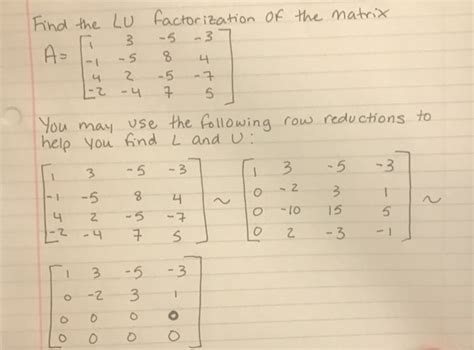 Find the LU factorization of the matrix
A= [1 3 -5 -3
-1 -5 8 4
4 2 -5 -7
-2 -4 7 5]
You may use the following row reductions to
help you find L and U:
[1 3 -5 -3
-1 -5 8 4
4 2 -5 -7
-2 -4 7 5] ~ [1 3 -5 -3
0 -2 3 1
0 -10 15 5
0 2 -3 -1] ~
[1 3 -5 -3
0 -2 3 1
0 0 0 0
0 0 0 0]